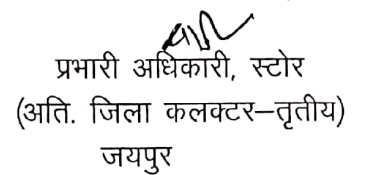 प्रभारी अधिकारी, स्टोर
(अति. जिला कलक्टर–तृतीय)
जयपुर